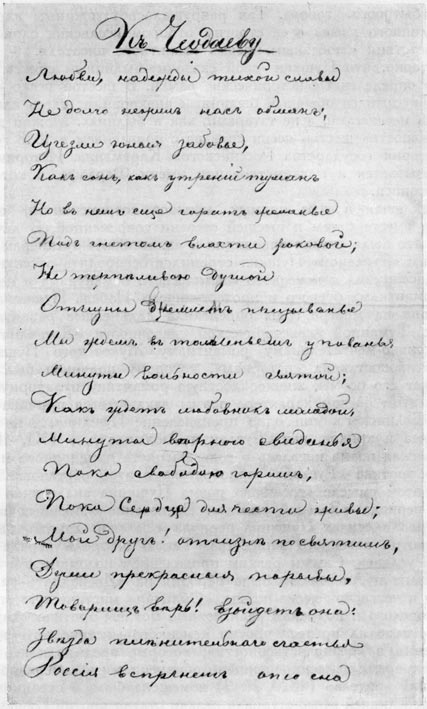 Къ Чеодаеву
Любви, надежды тихой славы
Не долго нежилъ насъ обманъ,
Изчезли юныя забовье,
Какъ сонъ, какъ утреній туманъ
Но въ насъ еще горитъ желанье
Подъ гнетомъ власти роковой;
Не терпѣливою душой
Отчизны внемлетъ призыванье
Мы ждемъ въ томленьемъ упованья
Минуты вольности святой;
Какъ ждетъ любовникъ молодой
Минуты верного свиданья
Пока свабодою горимъ,
Пока Сердца для чести живы;
Мой другъ! отчизнѣ посвятимъ,
Души прекрасныя порывы,
Товарищъ верь! взойдетъ она:
Звезда пленительнаго счастья
Россія вспрянетъ ото сна